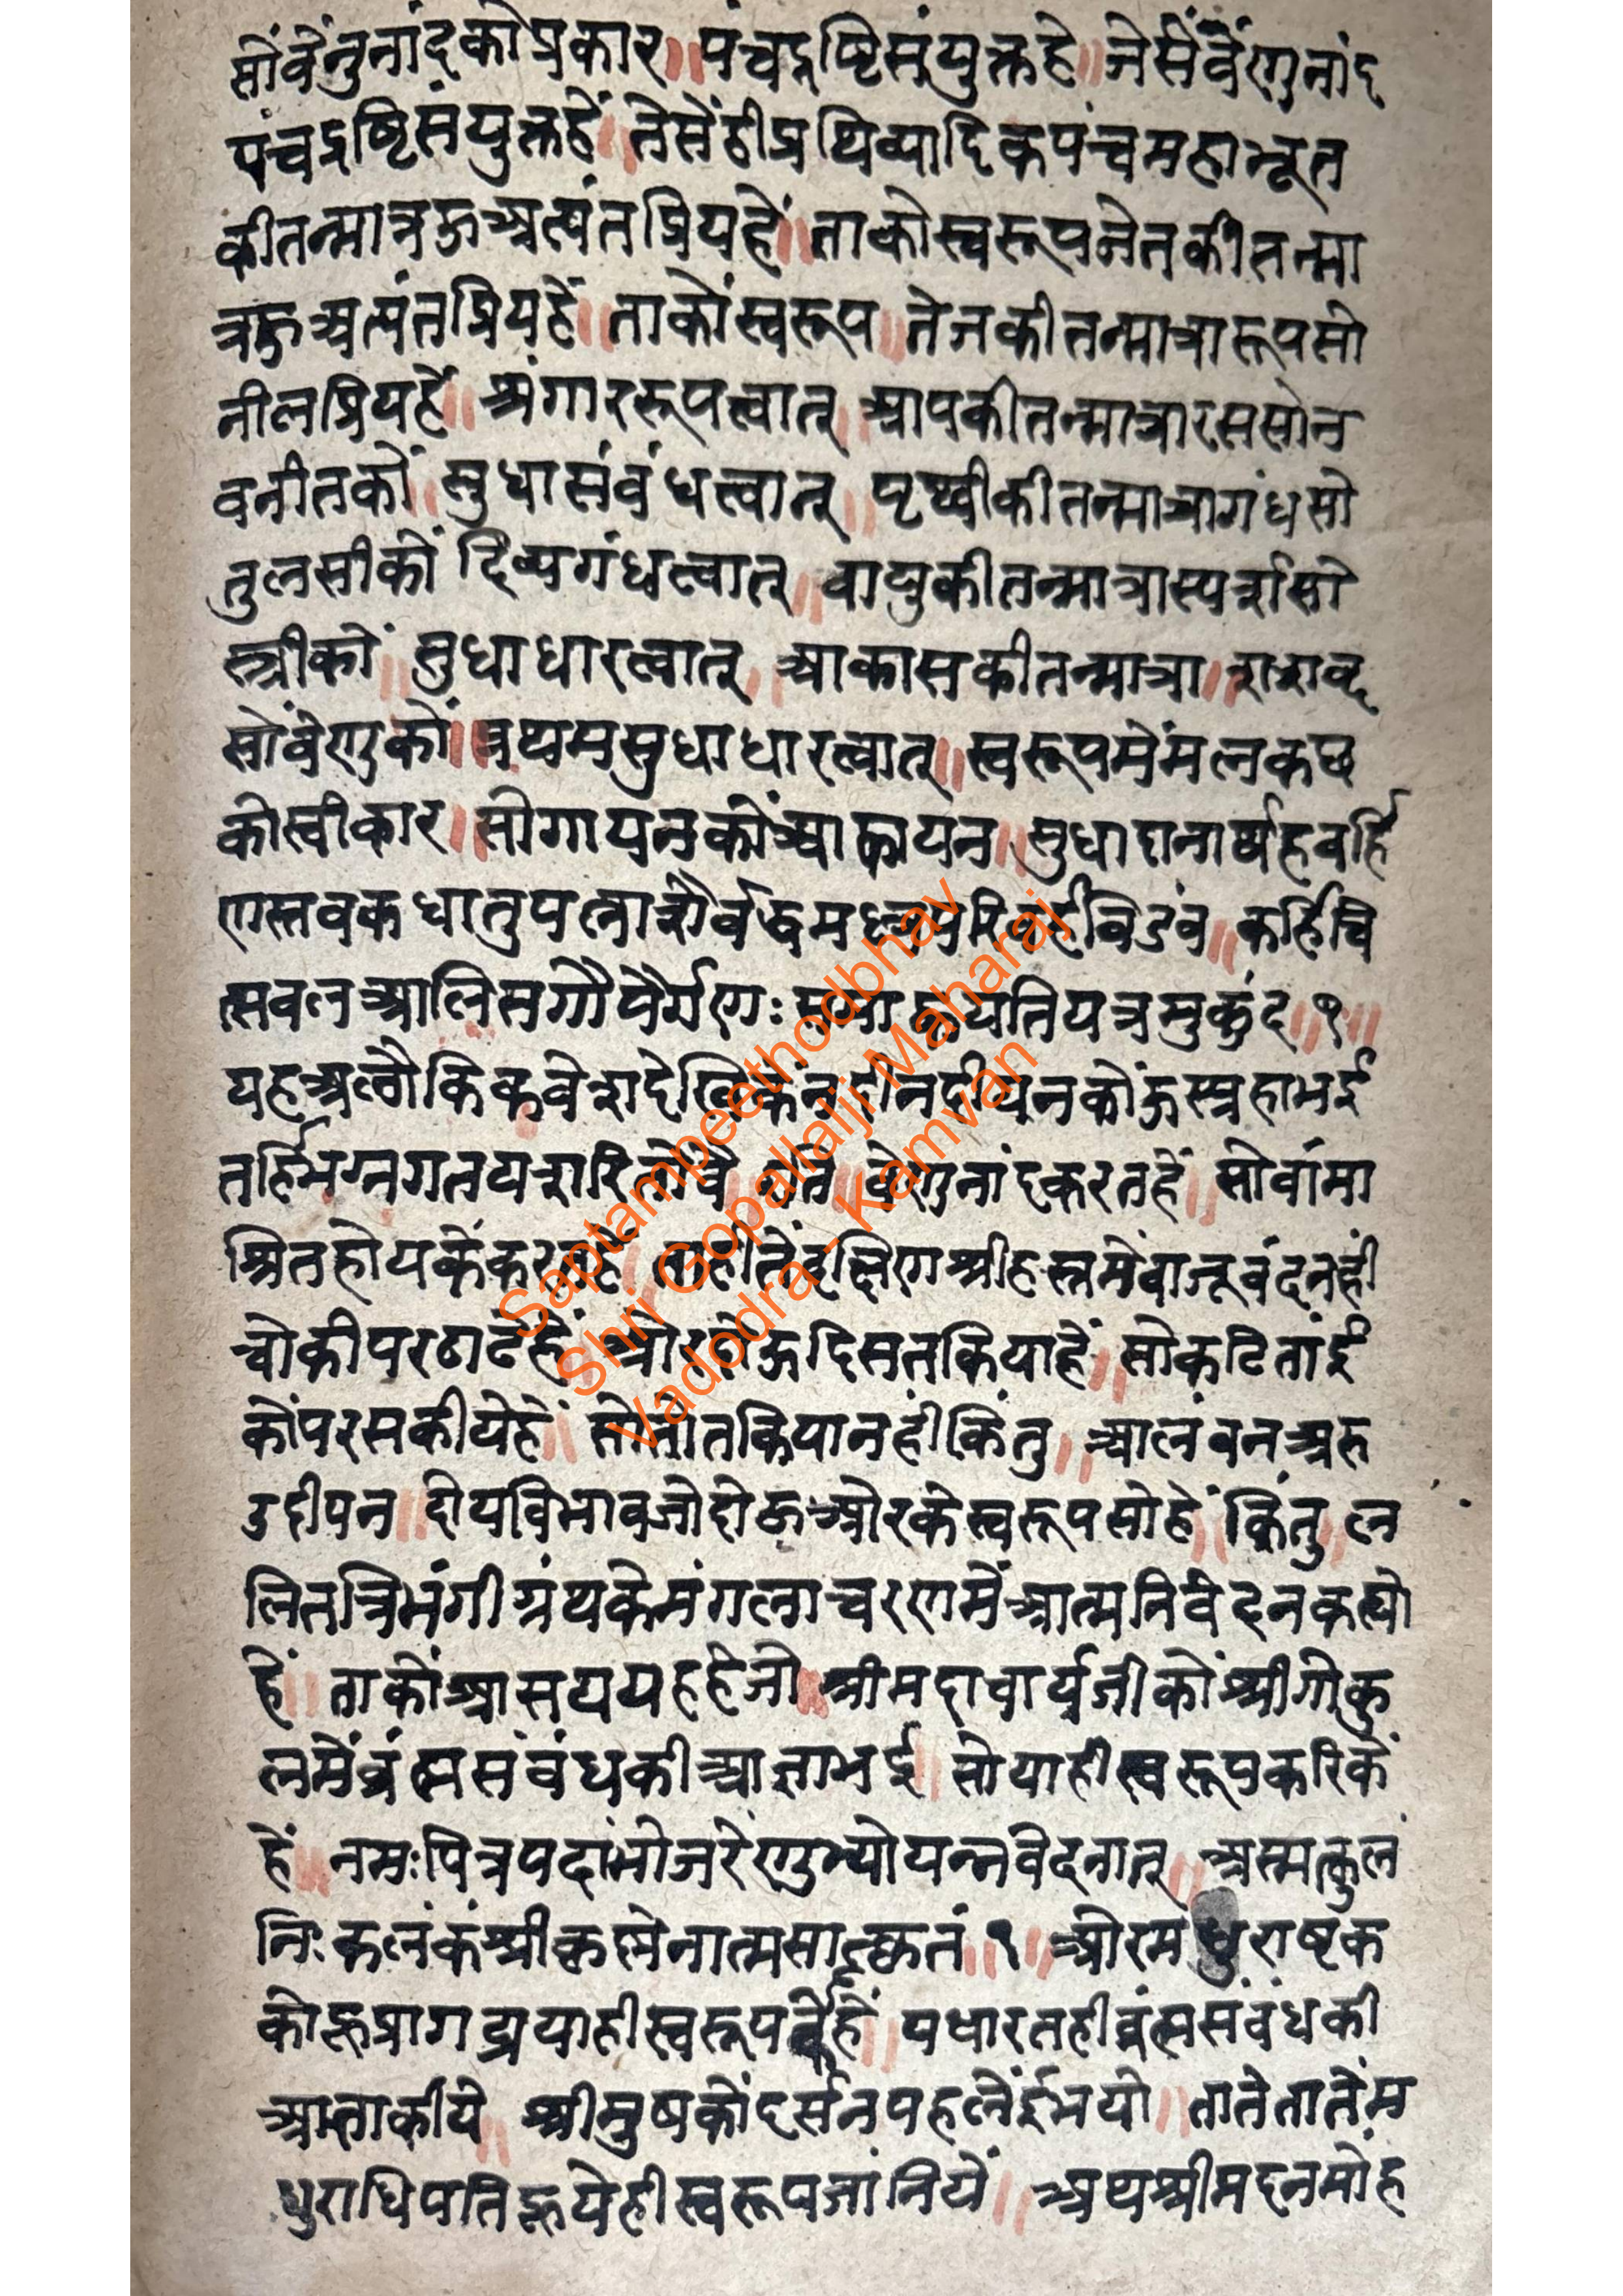 सोंवेंनुनांदकोप्रकार॥पंचद्दष्टिसंयुक्तहे॥जेसेंवेंणुनांद
पंचद्दष्टिसंयुक्तहें॥तेसेंहीप्रथिव्यादिकपंचमहाभूत
कीतन्मात्रऊअत्यंतप्रियहें॥ताकोस्वरूपजेतकीतन्मा
त्रऊअत्यंतप्रियहें॥ताकोंस्वरूप॥तेजकीतन्मात्रारूपसो
नीलप्रियहें॥श्रंगाररूपत्वात्॥आपकीतन्मात्रारससोन
वनीतकों॥सुधासंवंधत्वात्॥पृथ्वीकीतन्मात्रागंधसो
तुलसीकों दिव्यगंधत्वात्॥वायुकीतन्मात्रास्पर्शसो
स्त्रीकों॥सुधाधारत्वात्॥आकासकीतन्मात्रा॥शशव्द
सोंवेणुकों॥प्रथमसुधाधारत्वात्॥स्वरूपमेंमल्नकछ
कोस्वीकार॥सोगायनकोंआह्वायन॥सुधादानार्थहवर्हि
णस्तवकधातुपलाशैर्वद्धमल्लपरिवर्हविडंव॥कर्हिचि
त्सवलआलिसगोपैर्गणःसमाह्वयतियत्रमुकुंद॥१॥
यहअलौकिकवेशदेखिकेंनहीनदीयनकोंऊस्प्रहाभई
तर्हिभग्नगतयशरितोवै॥इति॥वेणुनांदकरतहें॥सोवांमा
श्रितहोयकेंकरतहें॥ताहीतेंदक्षिणश्रीहस्तमेंवाजूवंदनहीं
चोकीपरठाढेहें॥ओरहोऊदिसतकियाहें॥सोकटितांई
कोंपरसकीयेहें॥सोतोतकियानहींकिंतु॥आलंवनअरु
उदीपन॥दोयविभावजोदोऊओरकेस्वरूपसोहें॥किंतु॥ल
लितत्रिभंगीग्रंथकेमंगलाचरणमेंआत्मनिवेदनकह्यो
हें॥ताकोंआसययहहेजो॥श्रीमदाचार्यजीकोंश्रीगोकु
लमेंव्रंह्मसंवंधकीआज्ञाभई॥सोयाहीस्वरूपकरिकें
हें॥नमःपित्रपदांभोजरेणुभ्योयन्नवेदनात्॥अस्मत्कुलं
निःकलंकंश्रीकृष्णेनात्मसात्कृतं॥१॥ओरमधुराष्टक
कोऊप्रागट्ययाहीस्वरूपतेंहें॥पधारतहीव्रंह्मसंवंधकी
आज्ञाकीये॥श्रीमुषकोंदर्सनपहलेंईभयो॥तातेतातेंम
धुराधिपतिऊयेहीस्वरूपजांनियें॥अथश्रीमदनमोंह
Saptampeethodbhav
Shri Gopallalji Maharaj
Vadodra - Kamvan